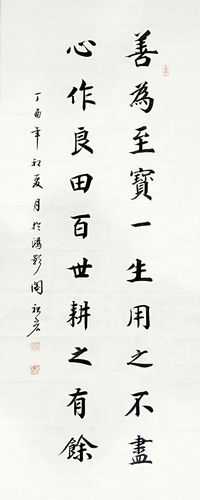 善為至寶一生用之不盡
心作良田百世耕之有餘
丁酉年初夏月於鴻影閣